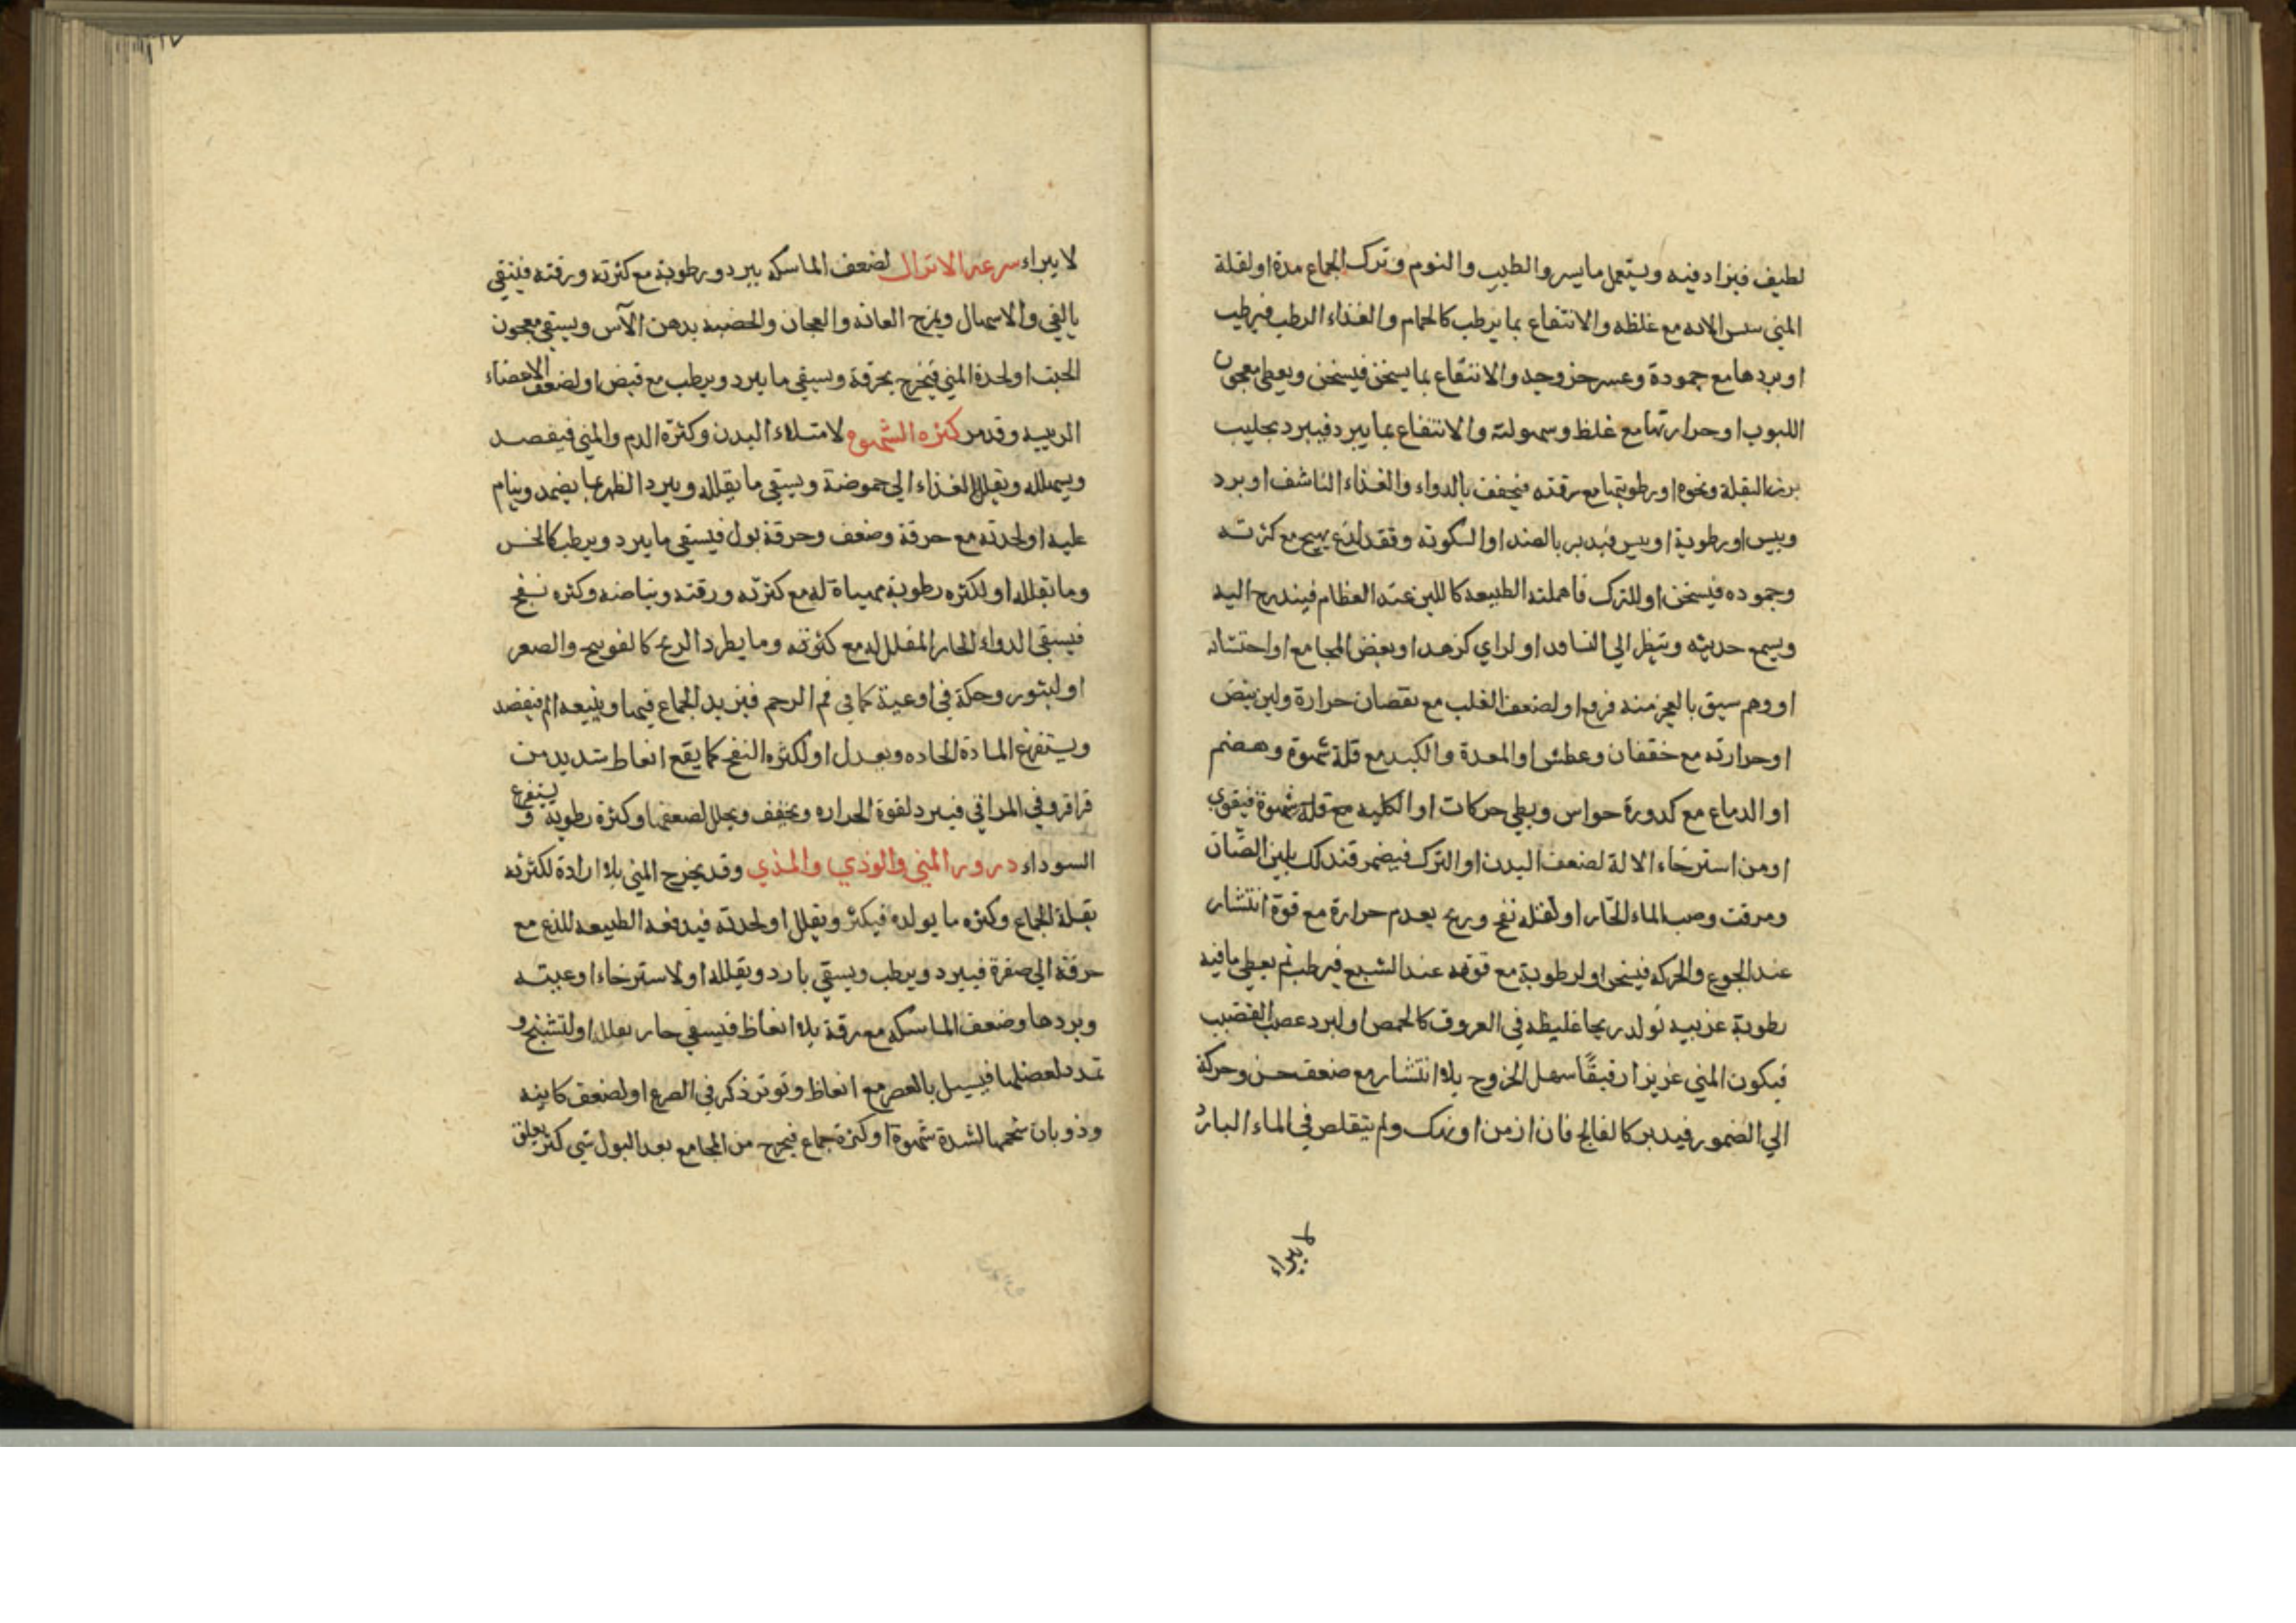 لطيف فيزاد فيه ويستعمل ما يسر والطيب والنوم وترك الجماع مدة او لقلة
المني مع غلظه والانتفاع بما يرطب كالحمام والغذاء الرطب فيرطب
او بردها مع جمودة وعسر خروجه والانتفاع بما يسخن فيسخن ويعطي معجون
اللبوب او حرارتها مع غلظ وسهولته والانتفاع بما يبرد فيبرد بحليب
بزر البقلة ونحوه او رطوبتها مع رقته فيجفف بالدواء والغذاء الناشف او برد
ويبس او رطوبة او يبس فيدبر بالضد او السكونه وفقد لذع يهيج مع كثرته
وجموده فيسخن او للترك فاهملته الطبيعه كاللبن عند الفطام فيندرج اليه
ويسمع حديثه وينظر الي التسافد او لراي كزهد او بغض المجامع او احتشامه
او وهم سبق بالعجز منه فزع او لضعف القلب مع نقصان حرارة ولين نبض
او حرارته مع خفقان وعطش او المعدة والكبد مع قلة شهوة وهضم
او الدماع مع كدورة حواس وبطي حركات او الكليه مع قلة شهوة فيقوي
او من استرخاء الالة لضعف البدن او الترك فيضمر فتدلك بلبن الضان
ومرقت وصب الماء الحار او لقله نفخ وريح بعدم حرارة مع قوة انتشار
عند الجوع والحركه فيسخن او لرطوبة مع قوته عند الشبع فيرطب ثم يعطي ما فيه
رطوبة غريبه تولد ريحا غليظه في العروق كالحمص او لبرد عصب القضيب
فيكون المني غزيزا رقيقًا سهل الخروج بلا انتشار مع ضعف حس وحركة
الي الضمور فيدبر كالفالج فان ازمن او نهك ولم يتقلص في الماء البارد
لا يبراء
لا يبراء سرعه الانزال لضعف الماسكه ببرد ورطوبة مع كثرته ورقته فينقي
بالقي والاسهال ويمرخ العانه والعجان والخصيه بدهن الآس ويسقي معجون
الخبث او لحدة المني فيخرج بحرقة ويسقي ما يبرد ويرطب مع قبض او لضعف الاعضاء
الرييسه وقد مر كثره الشهوه لامتلاء البدن وكثرة الدم والمني فيفصد
ويسهله ويقلل الغذاء الي حموضة ويسقي ما يقلله ويبرد الظهر بما يضمد وينام
عليه او لحدته مع حرقة وضعف وحرقة بول فيسقي ما يبرد ويرطب كالخس
وما يقلله او لكثره رطوبة مهياة له مع كثرته ورقته وبياضه وكثره نفخ
فيسقي الدواء الحار المقلل له مع كثرته وما يطرد الريح كالفوتنج والصعتر
او لبثور وحكة في اوعية كما في فم الرحم فيزيد الجماع فيها ويتبعه الم فيفصد
ويستفرغ المادة الحاده ويعدل او لكثره النفخ كما يقع انعاظ شديد من
قراقر وفي المراقي فيبرد لقوة الحراره ويجفف ويحلل لضعفها وكثرة رطوبه ويستفرغ
السوداء درور المني والوذي والمذي وقد يخرج المني بلا ارادة لكثرته
بقلة الجماع وكثره ما يولده فيكثر ويقلل او لحدته فيدفعه الطبيعه للذع مع
حرقة الي صفرة فيبرد ويرطب ويسقي بارد ويقلله او لاسترخاء اوعيته
وبردها وضعف الماسكه مع رقة بلا انعاظ فيسقي حار يقلل او لتشنج و
تمدد لعضلها فيسيل بالعصر مع انعاظ وتوتر ذكر في الصرع او لضعف كليه
وذوبان شحمها لشدة شهوة او كثرة جماع فيخرج من المجامع بعد البول شي كثير يعلق